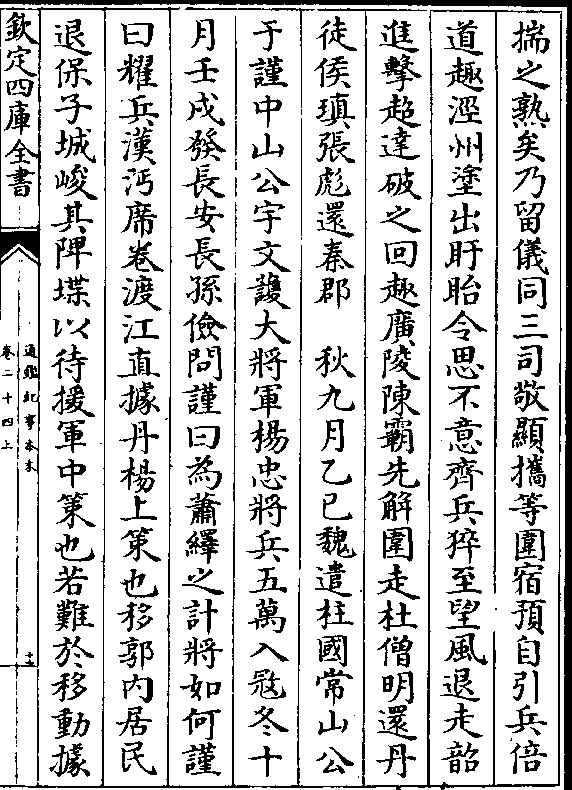 揣之熟矣乃留儀同三司敬顯攜等圍宿預自引兵倍
道趣涇州塗出盱眙令思不意齊兵猝至望風退走韶
進擊超達破之回趣廣陵陳霸先解圍走杜僧明還丹
徒侯瑱張彪還秦郡　秋九月乙巳魏遣柱國常山公
于謹中山公宇文護大將軍楊忠將兵五萬入寇冬十
月壬戌發長安長孫儉問謹曰為蕭繹之計將如何謹
曰耀兵漢沔席卷渡江直據丹楊上策也移郭內居民
退保子城峻其陴堞以待援軍中策也若難於移動據
欽定四庫全書
通鑑紀事本末
卷二十四上